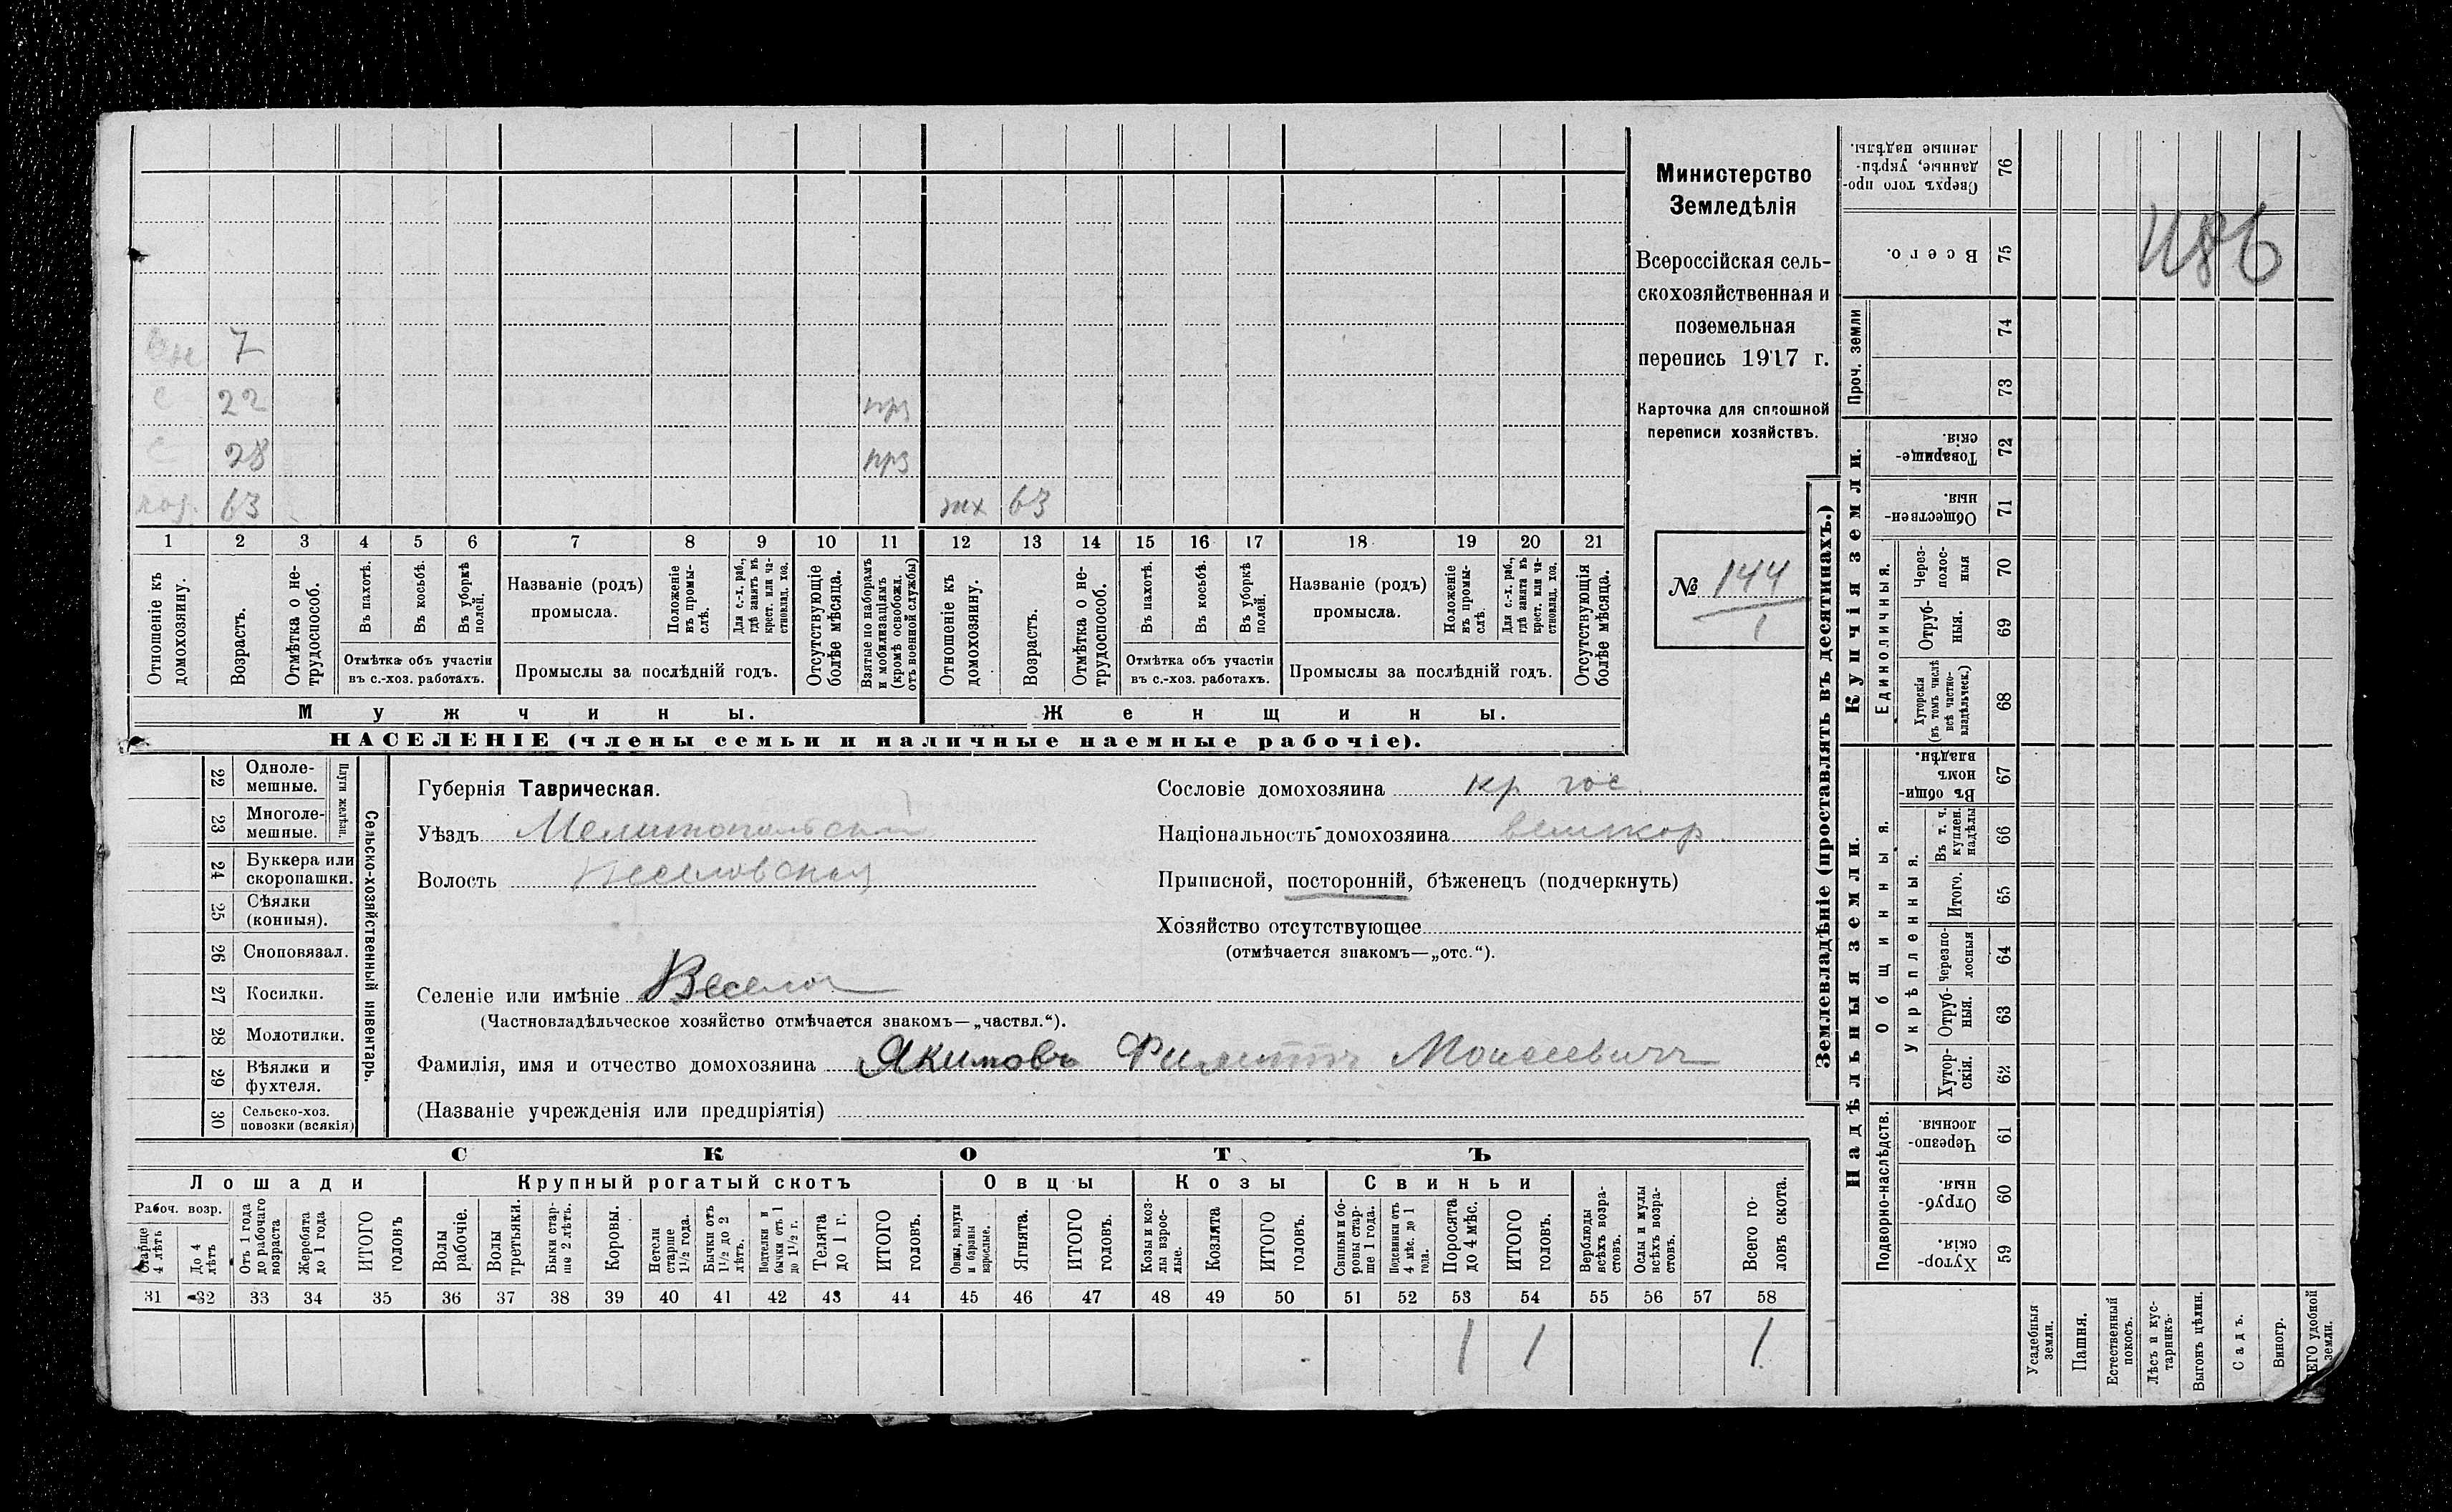 7
с 22 прз
с 28 прз
хоз. 63 жх 63
1 2 3 4 5 6 7 8 9 10 11 12 13 14 15 16 17 18 19 20 21
Отношеніе къ домохозяину.
Возрастъ.
Отмѣтка о не-
трудоспособ.
Въ пахотѣ.
Въ косьбѣ.
Въ уборкѣ полей.
Отмѣтка объ участіи
въ с.-хоз. работахъ.
Названіе (родъ)
промысла.
Положеніе въ промы-
слѣ.
Для с.-х. раб., гдѣ занятъ въ крест. или ча-
стновлад. хоз.
Промыслы за послѣдній годъ.
Отсутствующіе болѣе мѣсяца.
Взятые по наборамъ и мобилизаціямъ (кромѣ освобожд. отъ военной службы)
Отношеніе къ домохозяину.
Возрастъ.
Отмѣтка о не-
трудоспособ.
Въ пахотѣ.
Въ косьбѣ.
Въ уборкѣ полей.
Отмѣтка объ участіи
въ с.-хоз. работахъ.
Названіе (родъ)
промысла.
Положеніе въ промы-
слѣ.
Для с.-х. раб., гдѣ занята въ крест. или ча-
стновлад. хоз.
Промыслы за послѣдній годъ.
Отсутствующія болѣе мѣсяца.
Мужчины. Женщины.
НАСЕЛЕНІЕ (члены семьи и наличные наемные рабочіе).
Министерство
Земледѣлія
Всероссійская сель-
скохозяйственная и
поземельная
перепись 1917 г.
Карточка для сплошной
переписи хозяйствъ.
№ 144
1
22 Одноле-
мешные.
23 Многоле-
мешные.
Плуги желѣзн.
24 Буккера или
скоропашки.
25 Сѣялки
(конныя).
26 Сноповязал.
27 Косилки.
28 Молотилки.
29 Вѣялки и
фухтеля.
30 Сельско-хоз.
повозки (всякія)
Сельско-хозяйственный инвентарь.
Губернія Таврическая.
Уѣздъ Мелитопольскій
Волость Веселовская
Сословіе домохозяина кр гос.
Національность домохозяина великор.
Приписной, посторонній, бѣженецъ (подчеркнуть)
Хозяйство отсутствующее
(отмѣчается знакомъ—„отс.“).
Селеніе или имѣніе Веселое
(Частновладѣльческое хозяйство отмѣчается знакомъ—„частвл.“).
Фамилія, имя и отчество домохозяина Якимовъ Филиппъ Моисеевичъ
(Названіе учрежденія или предпріятія)
СКОТЪ
Лошади Крупный рогатый скотъ Овцы Козы Свиньи
Рабоч. возр.
Старше 4 лѣтъ
До 4 лѣтъ
Отъ 1 года до рабочаго возраста
Жеребята до 1 года
ИТОГО головъ
Волы рабочіе.
Волы третьяки.
Быки стар-
ше 2 лѣтъ.
Коровы.
Нетели старше 1½ года.
Бычки отъ 1½ до 2 лѣтъ.
Подтелки и бычки отъ 1 до 1½ г.
Телята до 1 г.
ИТОГО головъ.
Овцы, валухи и бараны взрослые.
Ягнята.
ИТОГО головъ.
Козы и коз-
лы взрос-
лые.
Козлята
ИТОГО головъ.
Свиньи и бо-
ровы стар-
ше 1 года.
Подсвинки отъ 4 мѣс. до 1 года.
Поросята до 4 мѣс.
ИТОГО головъ.
Верблюды всѣхъ возра-
стовъ.
Ослы и мулы всѣхъ возра-
стовъ.
Всего го-
ловъ скота.
31 32 33 34 35 36 37 38 39 40 41 42 43 44 45 46 47 48 49 50 51 52 53 54 55 56 57 58
1 1 1
Землевладѣніе (проставлять въ десятинахъ.)
Купчія земли.
Надѣльныя земли.
Сверхъ того про-
данные, укрѣп-
ленные надѣлы. 76
Всего. 75
Проч. земли 74
73
Товарище-
скія. 72
Обществен-
ныя. 71
Единоличныя.
Через-
полос-
ныя 70
Отруб-
ныя. 69
Хуторскія (въ томъ числѣ всѣ частно-
владѣльческ.) 68
Общинныя.
Въ общин-
номъ
владѣн. 67
Укрѣпленныя.
Въ т. ч. куплен. надѣлы 66
Итого. 65
Черезпо-
лосныя 64
Отруб-
ныя. 63
Хутор-
скія. 62
Подворно-наслѣдств.
Черезпо-
лосныя. 61
Отруб-
ныя. 60
Хутор-
скія. 59
Усадебныя земли.
Пашня.
Естественный покосъ.
Лѣсъ и кус-
тарникъ.
Выгонъ цѣлин.
Садъ.
Виногр.
ЕГО удобной земли.
1186